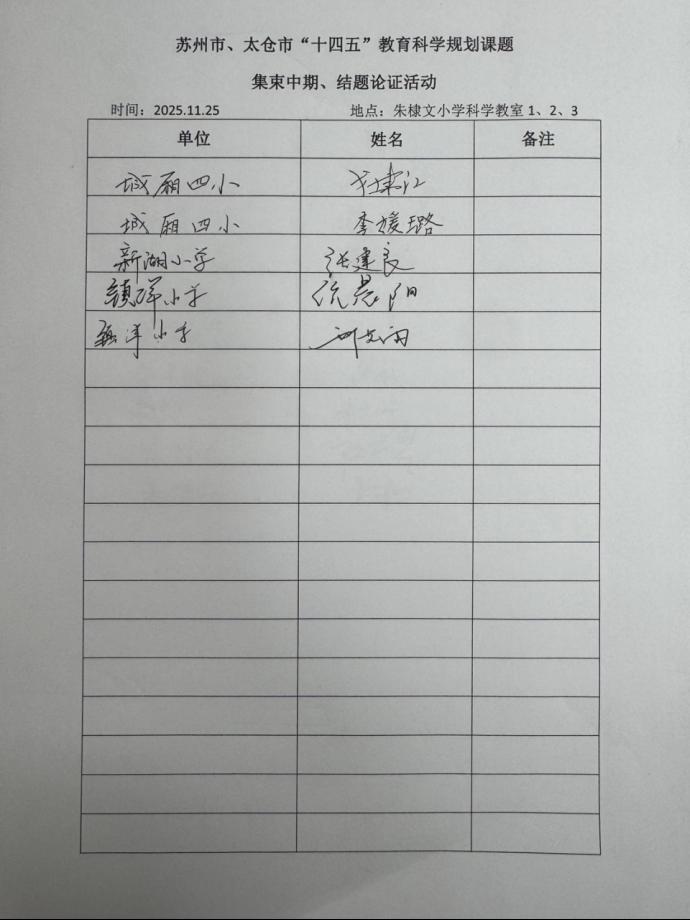 苏州市、太仓市“十四五”教育科学规划课题
集束中期、结题论证活动
时间：2025.11.25 地点：朱棣文小学科学教室 1、2、3
单位 姓名 备注
城厢四小
城厢四小 李媛璐
新湖小学 张建良
镇洋小学 徐晨阳
镇洋小学